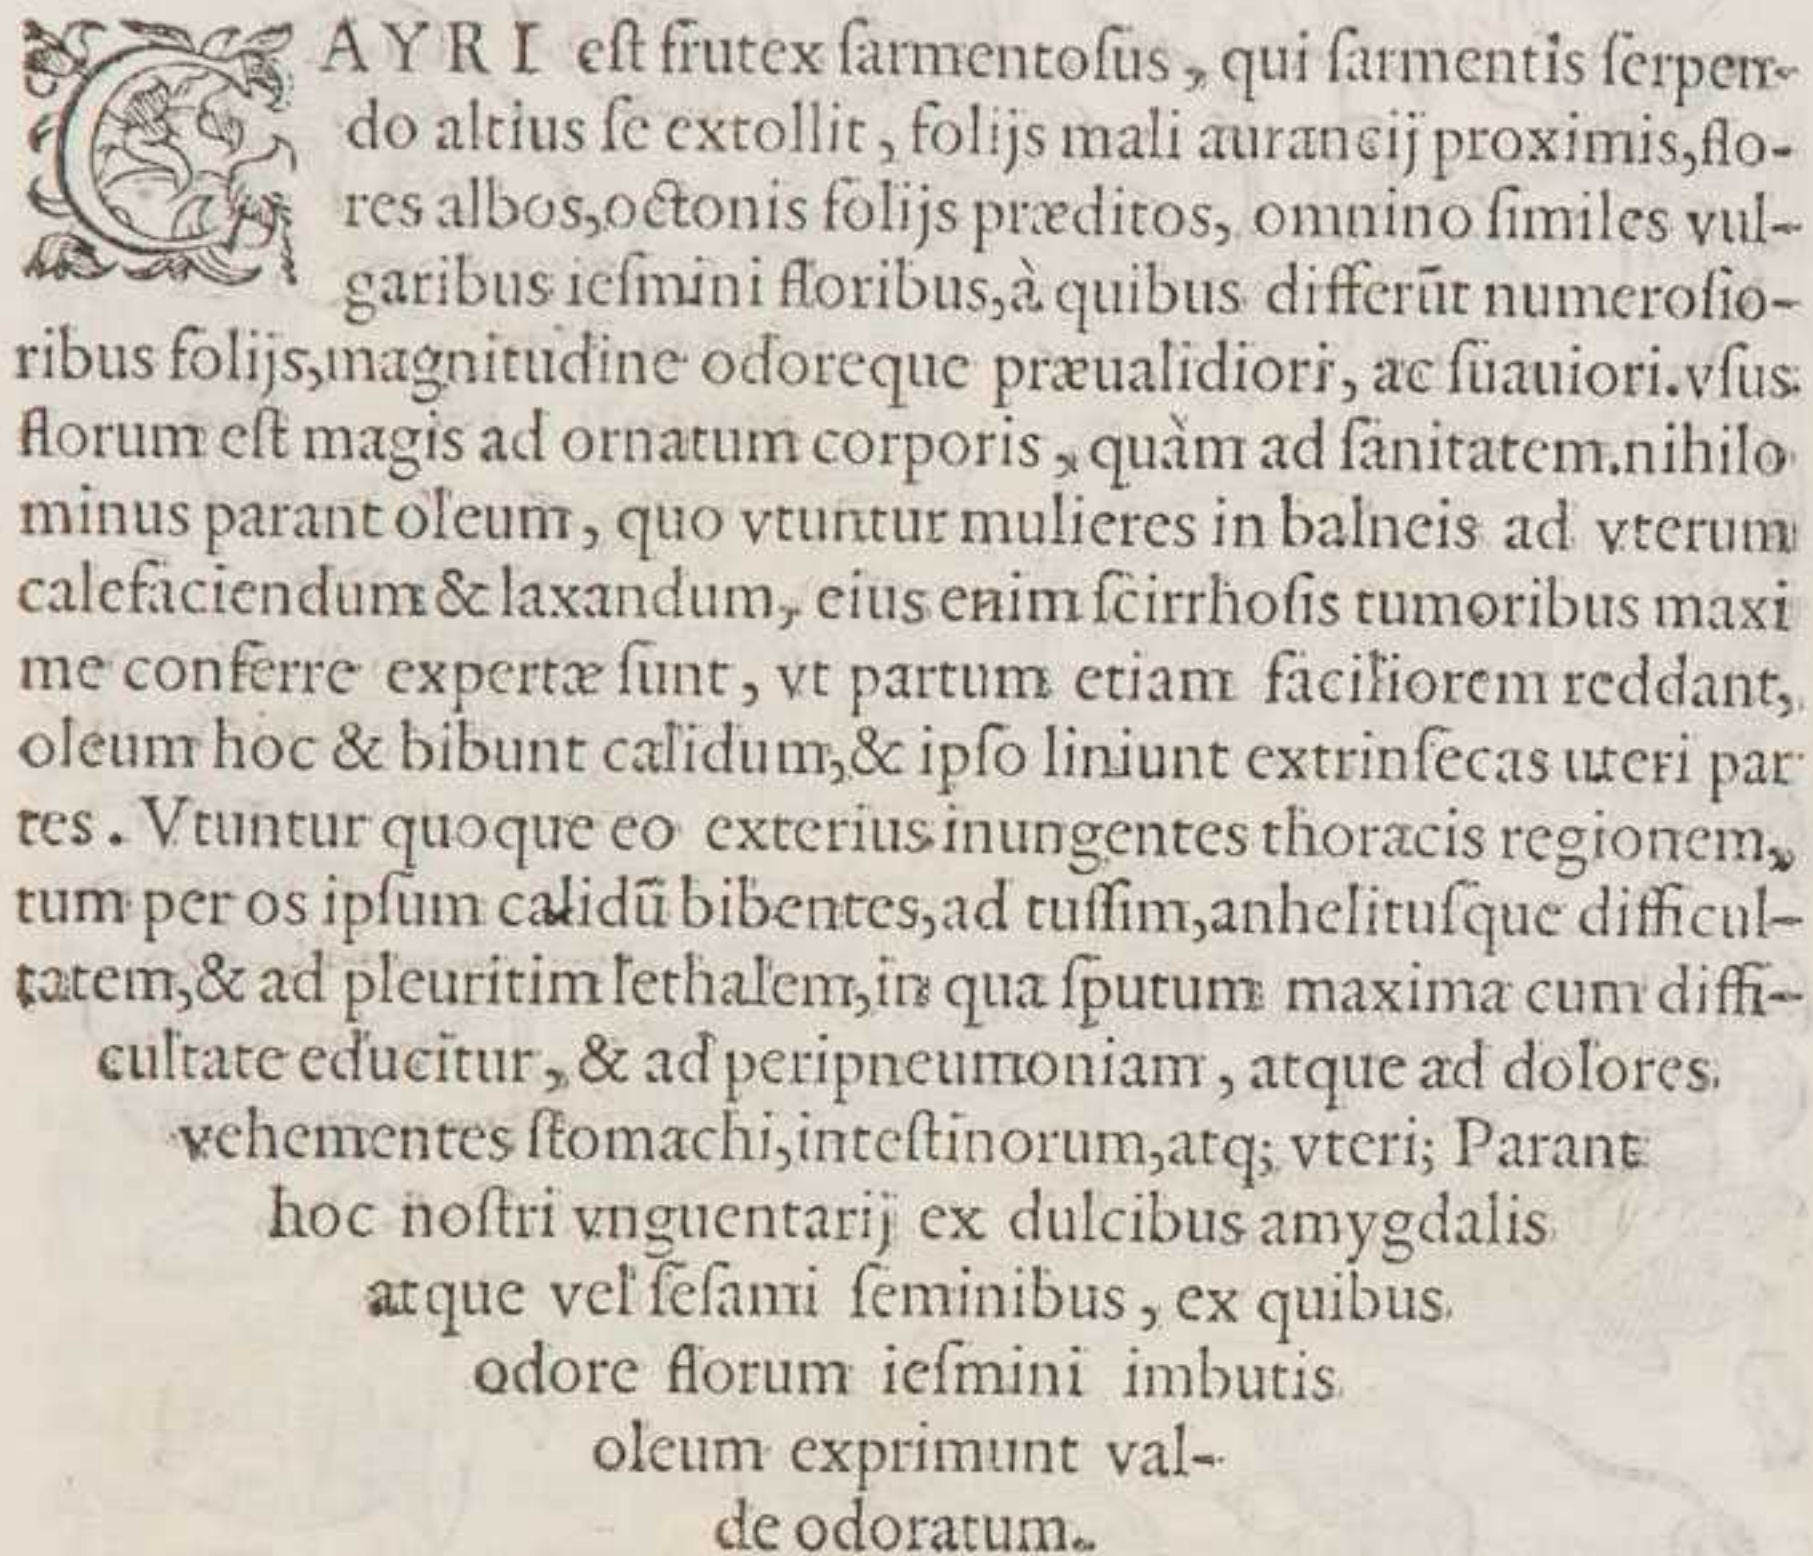 CAYRI eſt frutex ſarmentoſus, qui ſarmentis ſerpen-
do altius ſe extollit, folijs mali aurancij proximis, flo-
res albos, octonis folijs præditos, omnino ſimiles vul-
garibus ieſmini floribus, à quibus differũt numeroſio-
ribus folijs, magnitudine odoreque præualidiori, ac ſuauiori. vſus
florum eſt magis ad ornatum corporis, quàm ad ſanitatem. nihilo
minus parant oleum, quo vtuntur mulieres in balneis ad vterum
calefaciendum & laxandum, eius enim ſcirrhoſis tumoribus maxi
me conferre expertæ ſunt, vt partum etiam faciliorem reddant,
oleum hoc & bibunt calidum, & ipſo liniunt extrinſecas uteri par
tes. Vtuntur quoque eo exterius inungentes thoracis regionem,
tum per os ipſum calidũ bibentes, ad tuſſim, anhelituſque difficul-
tatem, & ad pleuritim lethalem, in qua ſputum maxima cum diffi-
cultate educitur, & ad peripneumoniam, atque ad dolores
vehementes ſtomachi, inteſtinorum, atq; vteri; Parant
hoc noſtri vnguentarij ex dulcibus amygdalis
atque vel ſeſami ſeminibus, ex quibus
odore florum ieſmini imbutis
oleum exprimunt val-
de odoratum.